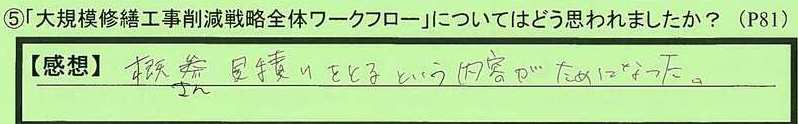 ⑤「大規模修繕工事削減戦略全体ワークフロー」についてはどう思われましたか？（P81）
【感想】概算見積りをとるという内容がためになった。
さん